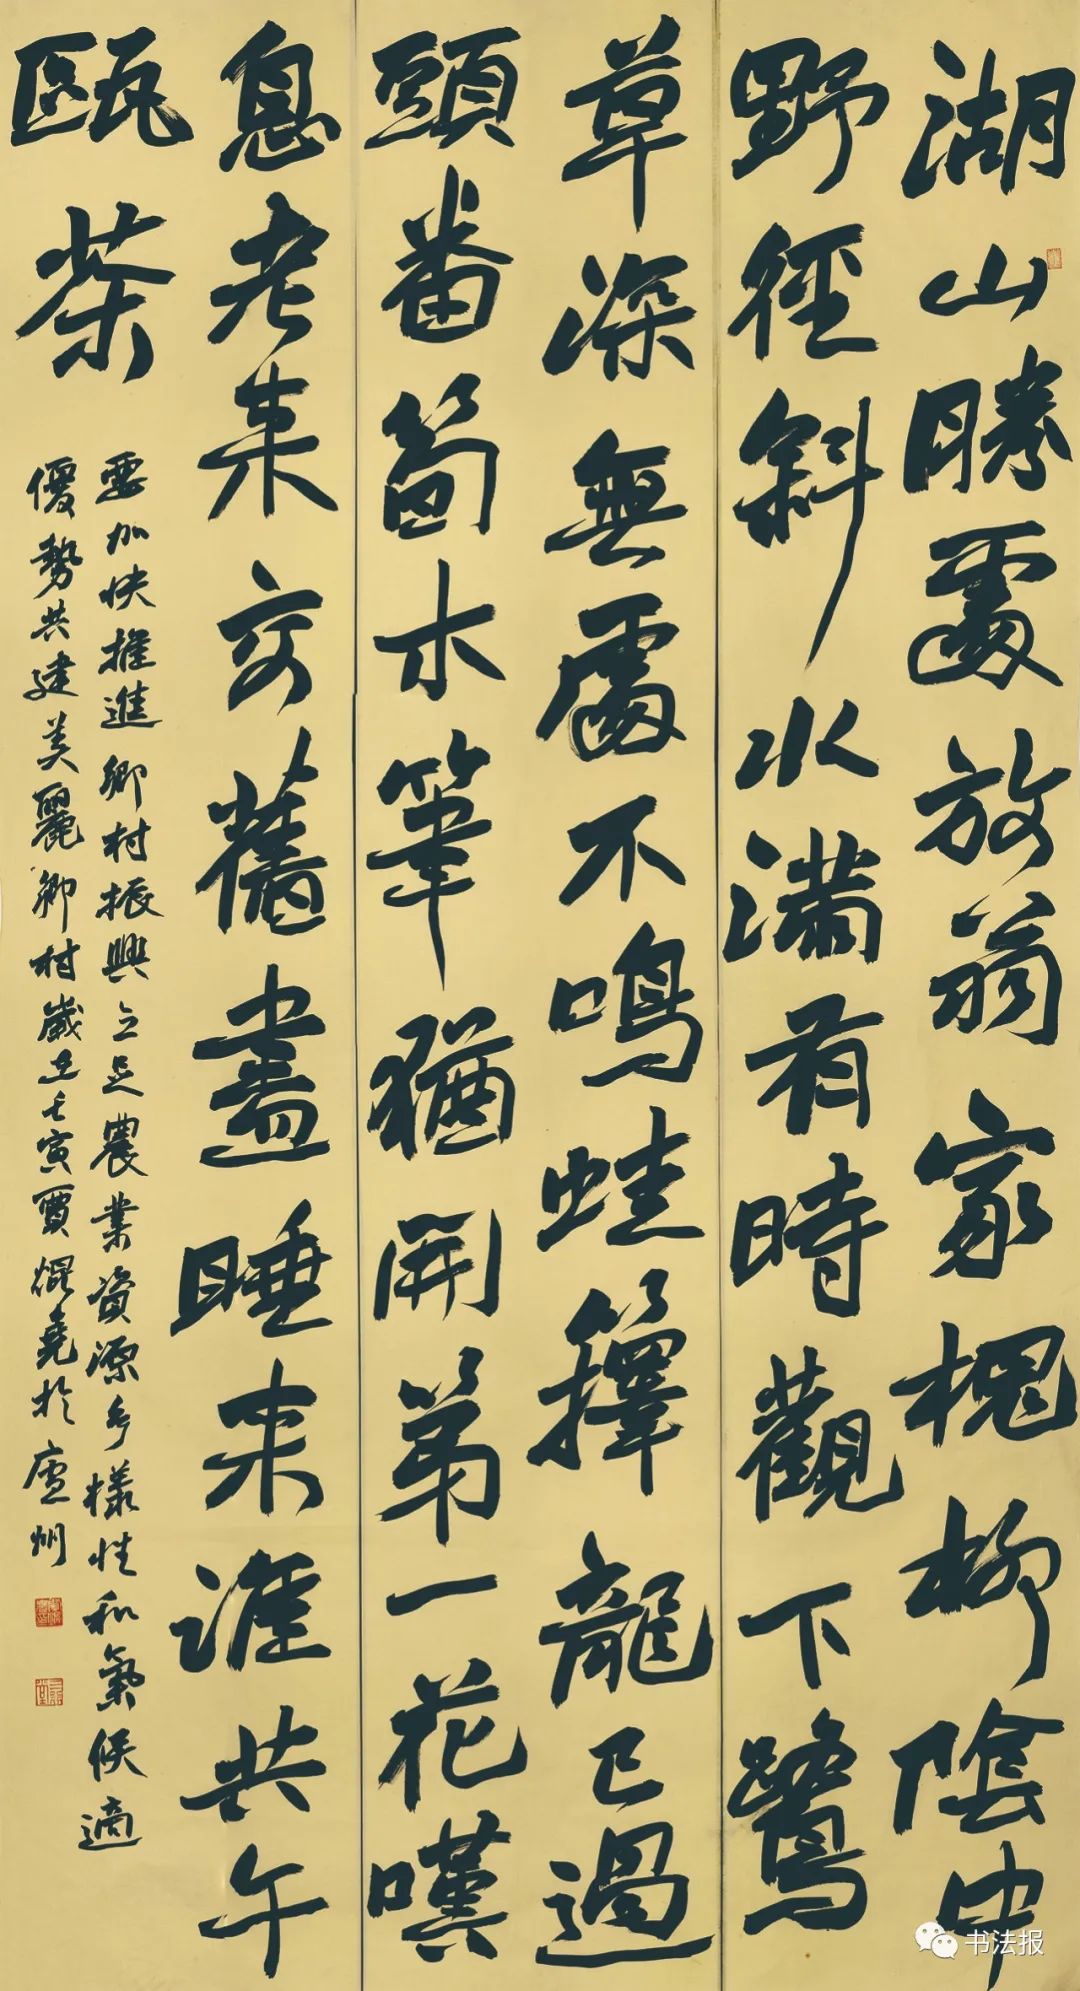 湖山勝處放翁家槐柳陰中
野徑斜水滿有時觀下鷺
草深無處不鳴蛙籜龍已過
頭番筍木筆猶開第一花嘆
息老來交舊盡睡來誰共午
甌茶
要加快推進鄉村振興立足農業資源多樣性和氣候適
優勢共建美麗鄉村歲在壬寅賈焜堯於廬州
书法报